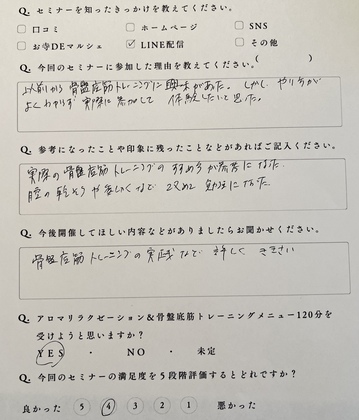 Q. セミナーを知ったきっかけを教えてください。
□ 口コミ □ ホームページ □ SNS
□ お寺DEマルシェ ☑ LINE配信 □ その他
( )
Q. 今回のセミナーに参加した理由を教えてください。
以前から骨盤底筋トレーニングに興味があった。しかし やり方が
よくわからず 実際に参加して 体験したいと思った。
Q. 参考になったことや印象に残ったことなどがあればご記入ください。
実際の骨盤底筋トレーニングの すすめ方が参考になった。
膣の乾 など 改めて 勉強になった
Q. 今後開催してほしい内容などがありましたらお聞かせください。
骨盤底筋トレーニングの実践など 詳しく ききたい
Q. アロマリラクゼーション&骨盤底筋トレーニングメニュー120分を
受けようと思いますか?
YES ・ NO ・ 未定
Q. 今回のセミナーの満足度を5段階評価するとどれですか?
良かった 5 4 3 2 1 悪かった